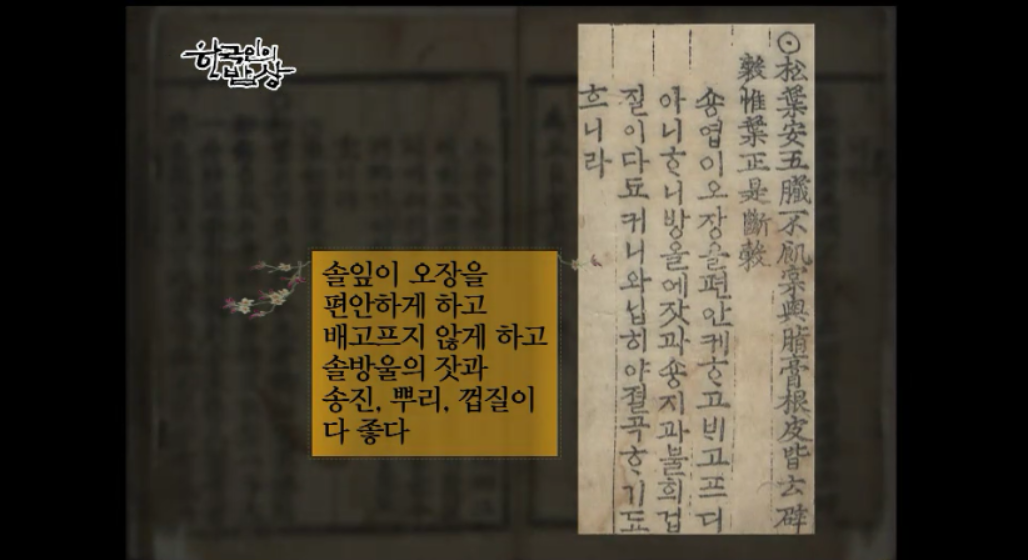 한국인의
밥상
松葉安五臟不飢宲與脂膏根皮皆云辟
穀惟葉正是斷穀
숑엽이오장을편안케ᄒᆞ고ᄇᆡ고프디
아니ᄒᆞ니방올에잣과숑지과불희겁
질이다됴커니와닙히야졀곡ᄒᆞ기도
ᄒᆞ니라
솔잎이 오장을
편안하게 하고
배고프지 않게 하고
솔방울의 잣과
송진, 뿌리, 껍질이
다 좋다